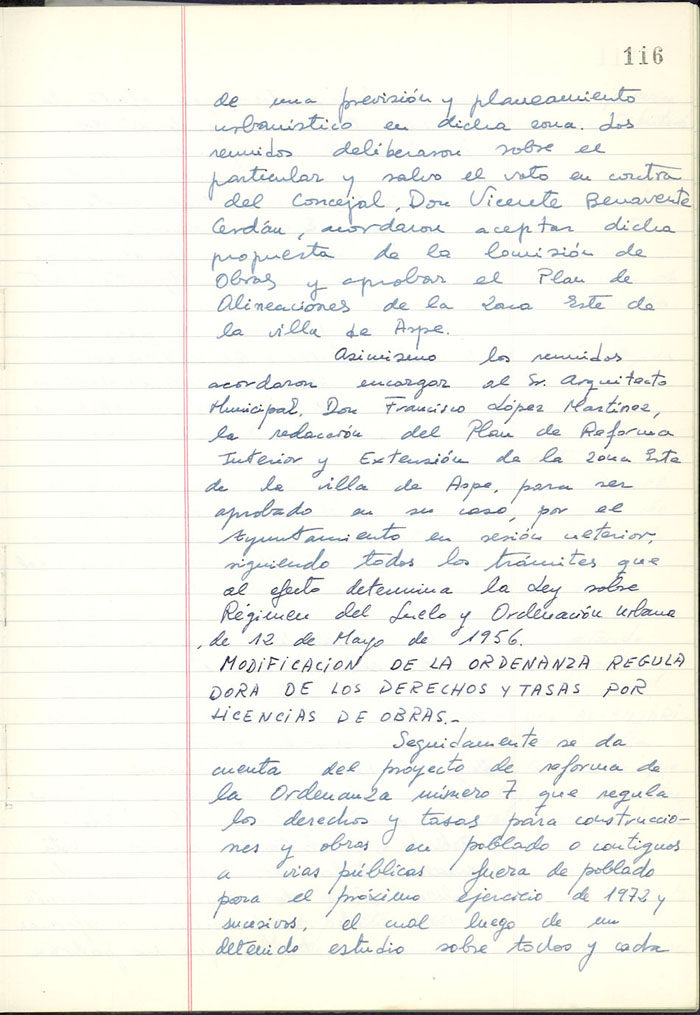 116
de una previsión y planeamiento
urbanístico en dicha zona. Los
reunidos deliberaron sobre el
particular y salvo el voto en contra
del Concejal, Don Vicente Benavente
Cerdán, acordaron aceptar dicha
propuesta de la Comisión de
Obras y aprobar el Plan de
Alineaciones de la Zona Este de
la villa de Aspe.
Asimismo los reunidos
acordaron encargar al Sr. Arquitecto
Municipal, Don Francisco López Martínez,
la redacción del Plan de Reforma
Interior y Extensión de la zona Este
de la villa de Aspe, para ser
aprobado en su caso, por el
Ayuntamiento en sesión ulterior,
siguiendo todos los trámites que
al efecto determina la Ley sobre
Régimen del Suelo y Ordenación Urbana
de 12 de Mayo de 1956.
MODIFICACION DE LA ORDENANZA REGULA
DORA DE LOS DERECHOS Y TASAS POR
LICENCIAS DE OBRAS.-
Seguidamente se da
cuenta del proyecto de reforma de
la Ordenanza número 7 que regula
los derechos y tasas para construccio-
nes y obras en poblado o contiguos
a vias públicas fuera de poblado
para el próximo ejercicio de 1972 y
sucesivos, el cual luego de un
detenido estudio sobre todos y cada